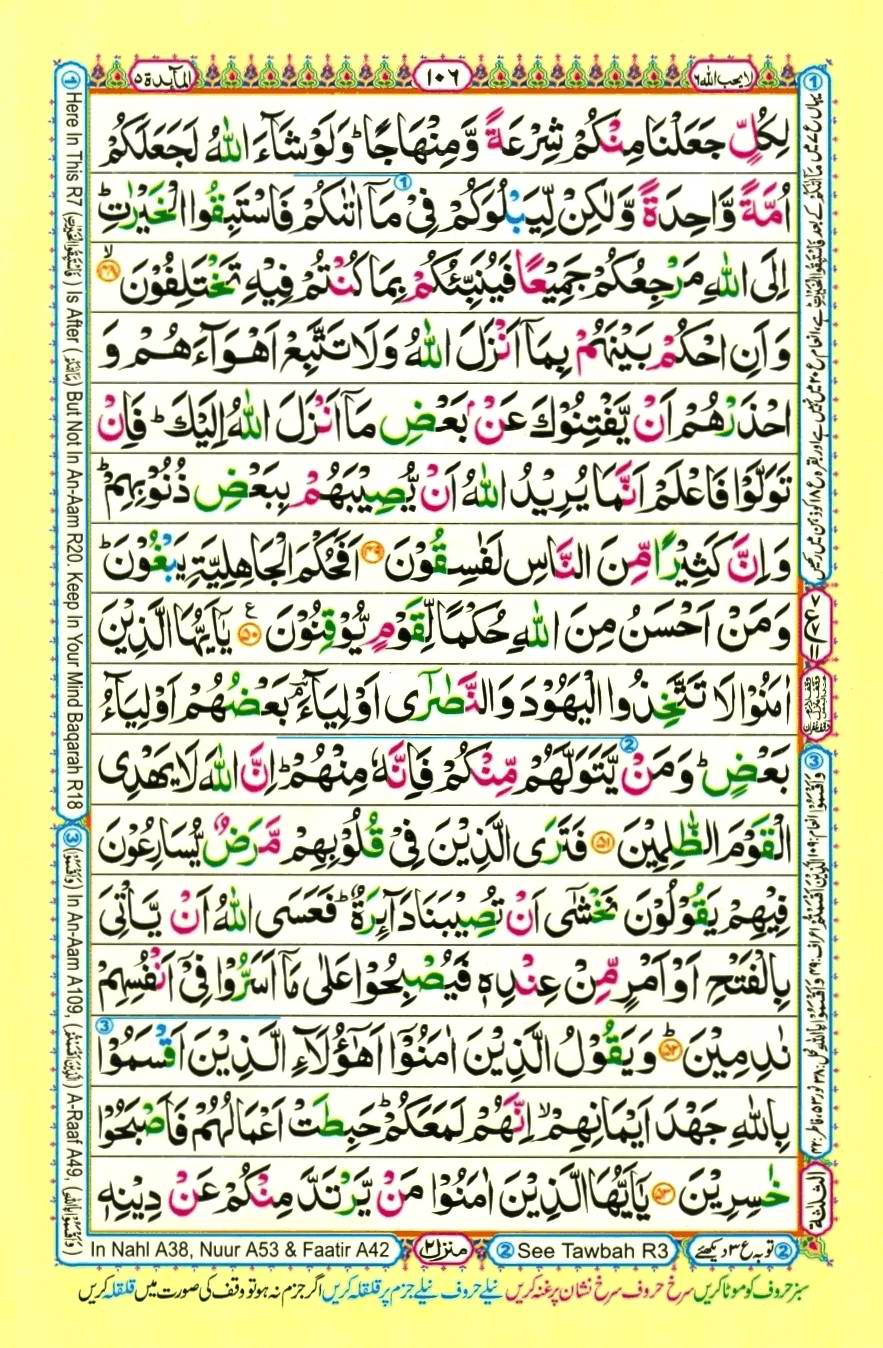 لا يحب الله ٦
١٠٦
المآئدة ٥
لِكُلٍّ جَعَلْنَا مِنْكُمْ شِرْعَةً وَّمِنْهَاجًا ؕ وَلَوْ شَآءَ اللّٰهُ لَجَعَلَكُمْ
اُمَّةً وَّاحِدَةً وَّلٰكِنْ لِّيَبْلُوَكُمْ فِىْ مَاۤ اٰتٰىكُمْ فَاسْتَبِقُوا الْخَيْرٰتِ ؕ
اِلَى اللّٰهِ مَرْجِعُكُمْ جَمِيْعًا فَيُنَبِّئُكُمْ بِمَا كُنْتُمْ فِيْهِ تَخْتَلِفُوْنَ ۙ ٤٨
وَاَنِ احْكُمْ بَيْنَهُمْ بِمَاۤ اَنْزَلَ اللّٰهُ وَلَا تَتَّبِعْ اَهْوَآءَهُمْ وَ
احْذَرْهُمْ اَنْ يَّفْتِنُوْكَ عَنْۢ بَعْضِ مَاۤ اَنْزَلَ اللّٰهُ اِلَيْكَ ؕ فَاِنْ
تَوَلَّوْا فَاعْلَمْ اَنَّمَا يُرِيْدُ اللّٰهُ اَنْ يُّصِيْبَهُمْ بِبَعْضِ ذُنُوْبِهِمْ ؕ
وَاِنَّ كَثِيْرًا مِّنَ النَّاسِ لَفٰسِقُوْنَ ٤٩ اَفَحُكْمَ الْجَاهِلِيَّةِ يَبْغُوْنَ ؕ
وَمَنْ اَحْسَنُ مِنَ اللّٰهِ حُكْمًا لِّقَوْمٍ يُّوْقِنُوْنَ ٥٠ ع يٰۤاَيُّهَا الَّذِيْنَ
اٰمَنُوْا لَا تَتَّخِذُوا الْيَهُوْدَ وَالنَّصٰرٰۤى اَوْلِيَآءَ ۘ بَعْضُهُمْ اَوْلِيَآءُ
بَعْضٍ ؕ وَمَنْ يَّتَوَلَّهُمْ مِّنْكُمْ فَاِنَّهٗ مِنْهُمْ ؕ اِنَّ اللّٰهَ لَا يَهْدِى
الْقَوْمَ الظّٰلِمِيْنَ ٥١ فَتَرَى الَّذِيْنَ فِىْ قُلُوْبِهِمْ مَّرَضٌ يُّسَارِعُوْنَ
فِيْهِمْ يَقُوْلُوْنَ نَخْشٰٓى اَنْ تُصِيْبَنَا دَآئِرَةٌ ؕ فَعَسَى اللّٰهُ اَنْ يَّاْتِىَ
بِالْفَتْحِ اَوْ اَمْرٍ مِّنْ عِنْدِهٖ فَيُصْبِحُوْا عَلٰى مَاۤ اَسَرُّوْا فِىْۤ اَنْفُسِهِمْ
نٰدِمِيْنَ ؕ ٥٢ وَيَقُوْلُ الَّذِيْنَ اٰمَنُوْۤا اَهٰٓؤُلَآءِ الَّذِيْنَ اَقْسَمُوْا
بِاللّٰهِ جَهْدَ اَيْمَانِهِمْ ۙ اِنَّهُمْ لَمَعَكُمْ ؕ حَبِطَتْ اَعْمَالُهُمْ فَاَصْبَحُوْا
خٰسِرِيْنَ ٥٣ يٰۤاَيُّهَا الَّذِيْنَ اٰمَنُوْا مَنْ يَّرْتَدَّ مِنْكُمْ عَنْ دِيْنِهٖ
1 Here In This R7 (فَاسْتَبِقُوا الْخَيْرٰتِ) Is After (مَاۤ اٰتٰىكُمْ) But Not In An-Aam R20. Keep In Your Mind Baqarah R18
3 (وَاَقْسَمُوْا) In An-Aam A109, (الَّذِيْنَ اَقْسَمْتُمْ) A-Raaf A49, (وَاَقْسَمُوْا بِاللّٰهِ)
الثلثة
In Nahl A38, Nuur A53 & Faatir A42
منزل ٢
2 See Tawbah R3
2 توبہ ع ٣ دیکھئے
سبز حروف کو موٹا کریں سرخ حروف سرخ نشان پر غنہ کریں نیلے حروف نیلے جزم پر قلقلہ کریں اگر جزم نہ ہو تو وقف کی صورت میں قلقلہ کریں